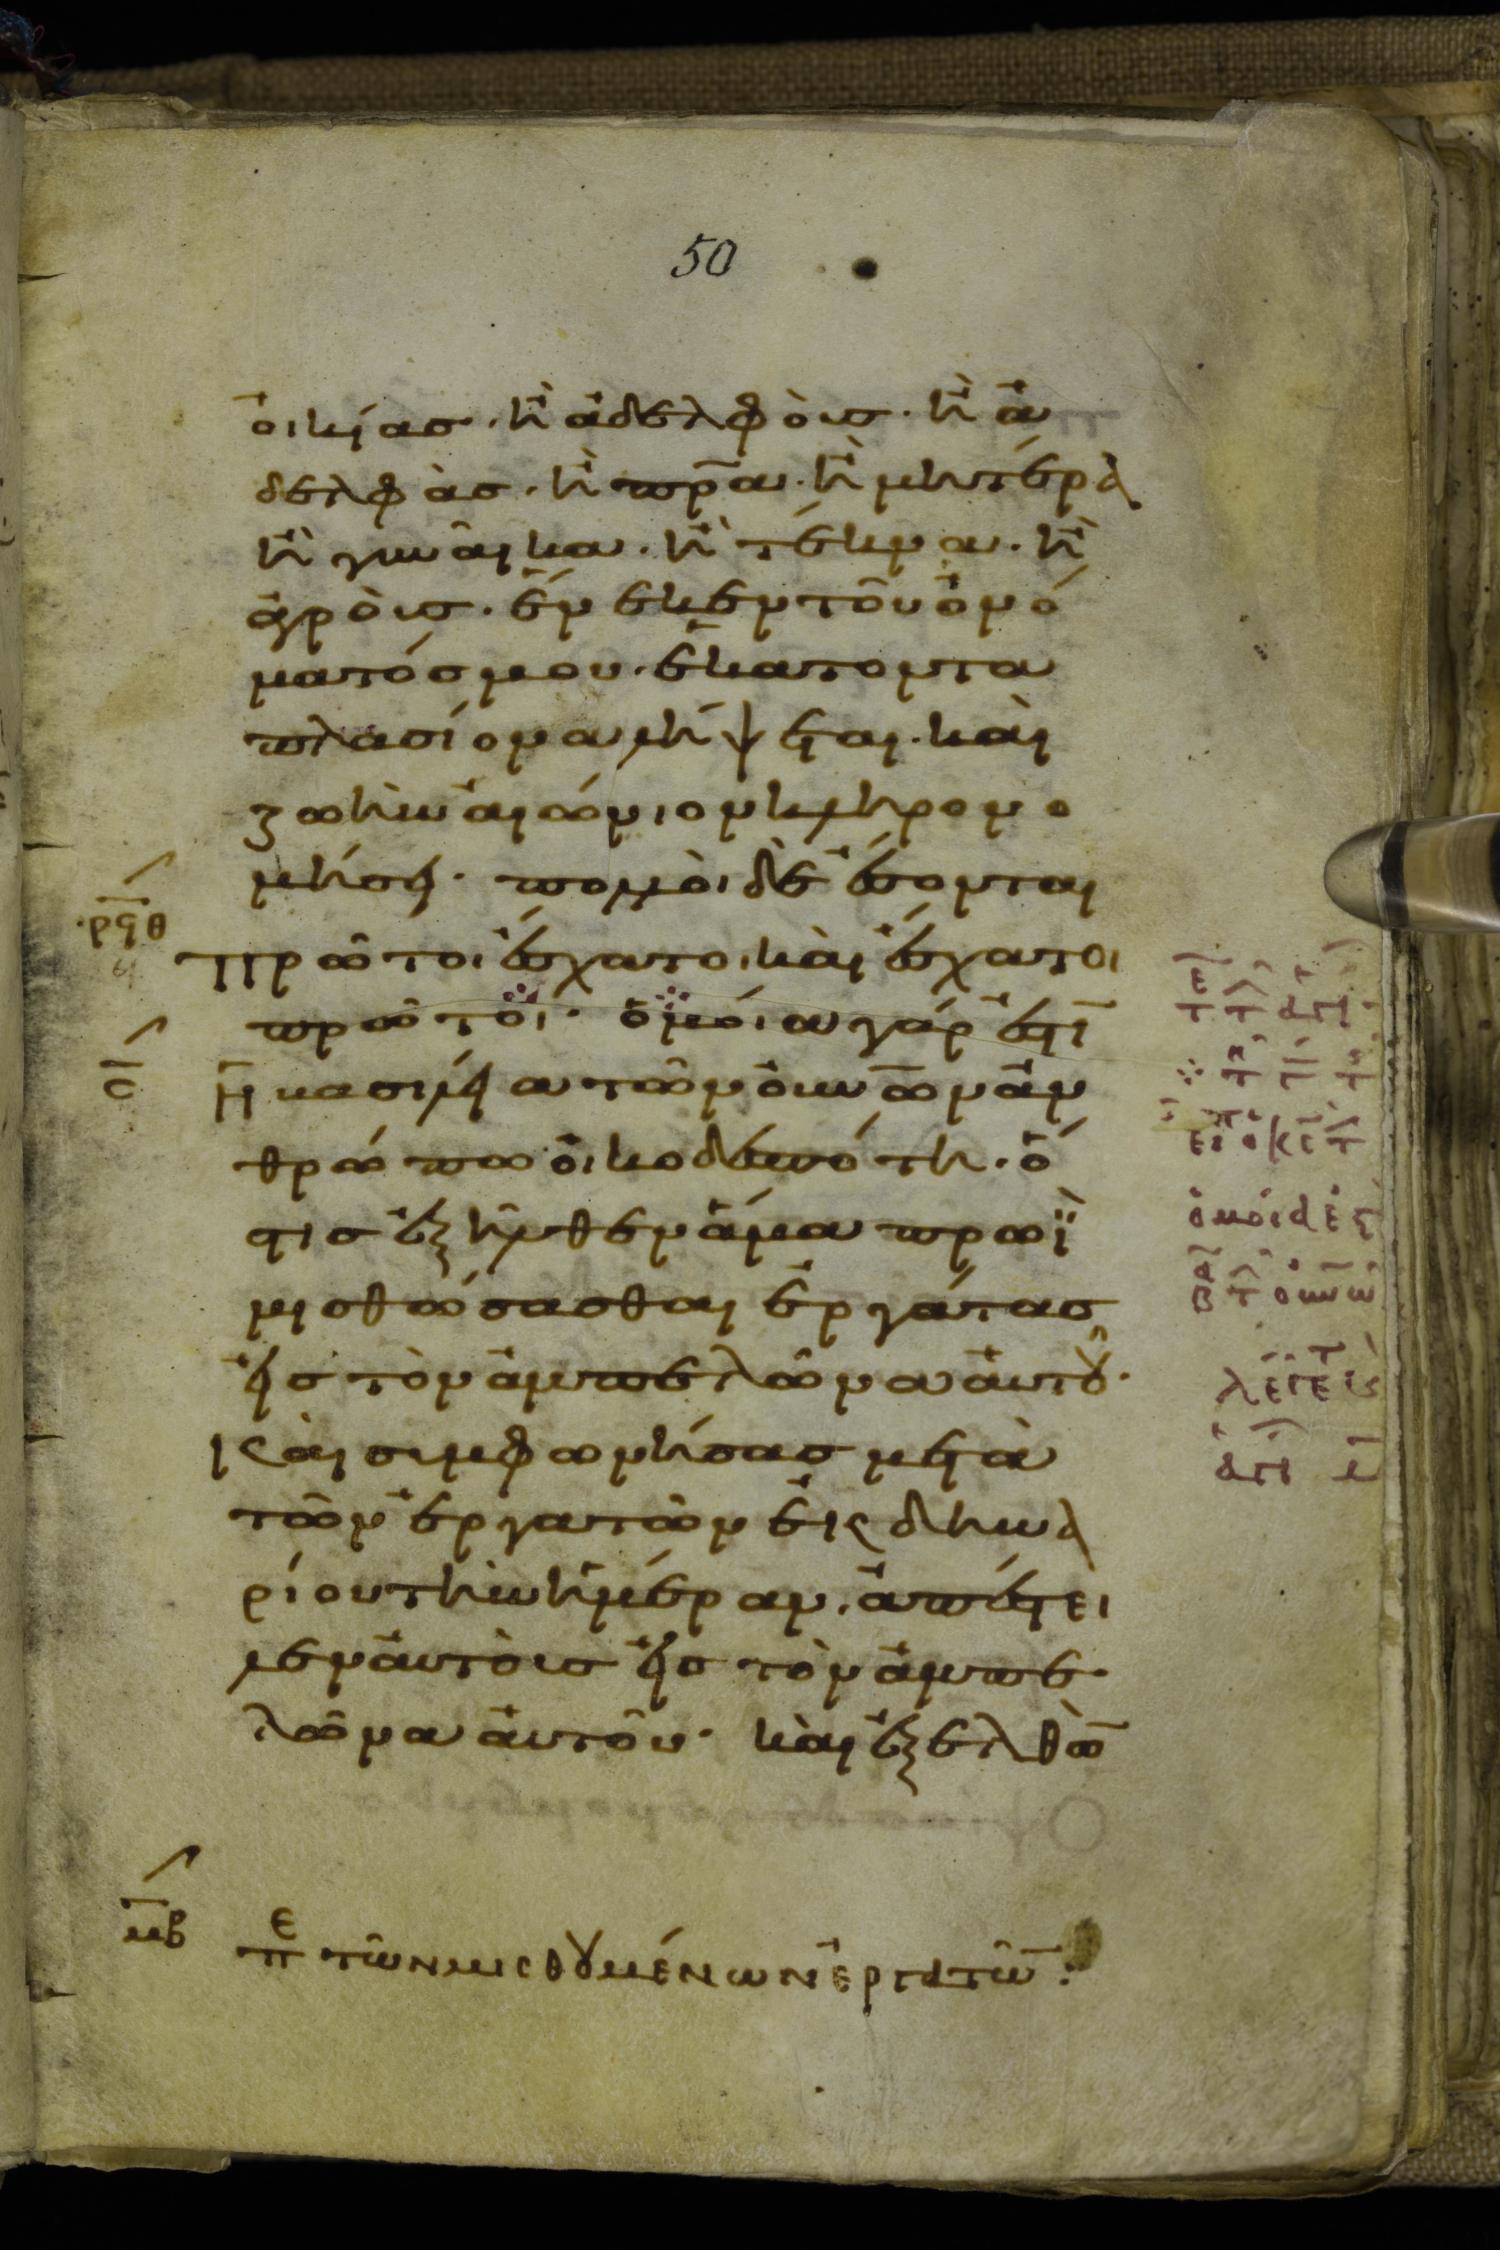 50
οἰκίας · κ(αὶ) ἀδελφοὺς · κ(αὶ) ἀ
δελφὰς · κ(αὶ) πρ̅α · κ(αὶ) μητέρα
κ(αὶ) γυναῖκα · κ(αὶ) τέκνα · κ(αὶ)
ἀγροὺς · ἕνεκεν τοῦ ὀνό
ματός μου · ἑκατοντα
πλασίονα λήψεται · καὶ
ζωὴν αἰώνιον κληρονο
μήσει · πολλοὶ δὲ ἔσονται
ρϟθ
πρῶτοι ἔσχατοι καὶ ἔσχατοι
πρῶτοι · ὁμοία γάρ ἐστι̅
σ̅
ἡ βασιλεία τῶν οὐνω̅ν ἀν
θρώπω οἰκοδεσπότη · ὅ
στις ἐξῆλθεν ἅμα πρωῒ
μισθώσασθαι ἐργάτας
εἰς τὸν ἀμπελῶνα αὐτοῦ ·
καὶ συμφωνήσας μετὰ
τῶν ἐργατῶν ἐκ δηνα
ρίου τὴν ἡμέραν · ἀπέστει
λεν αὐτοὺς εἰς τὸν ἀμπε
λῶνα αὐτοῦ · καὶ ἐξελθω̅
ὁμοία ἐς
μβ
πε τῶν μισθουμένων ἐργατω̅ :